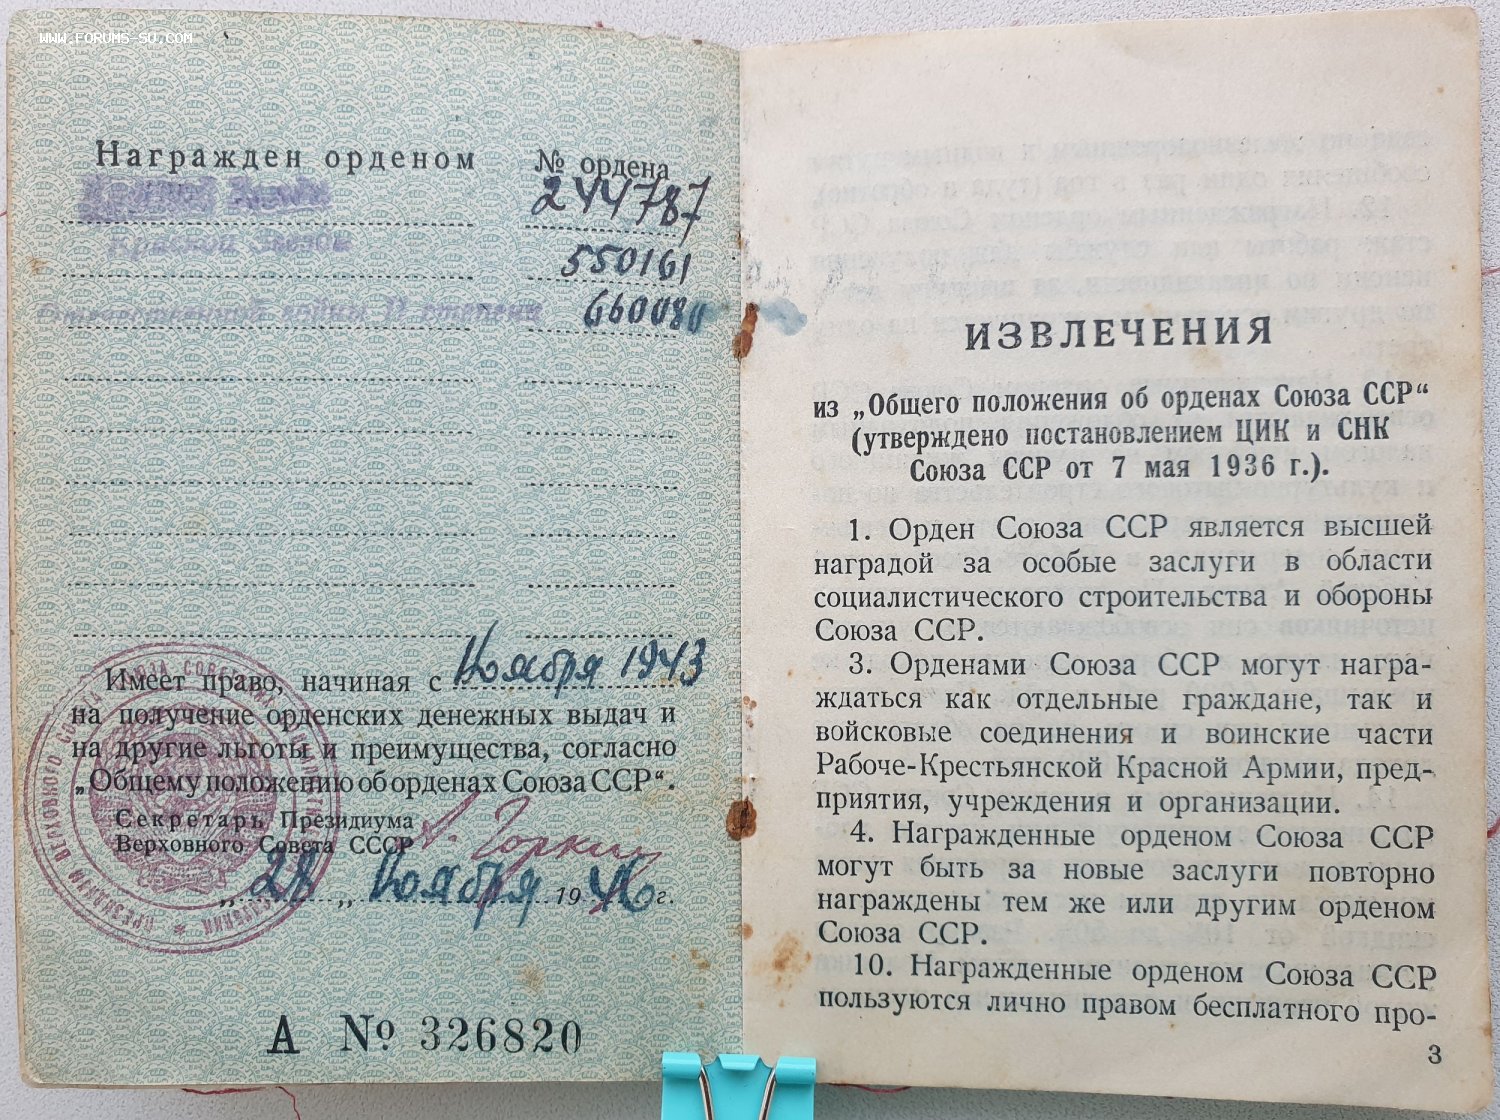 www.forums-su.com
Награжден орденом № ордена
Красной Звезды 244787
Красной Звезды 550161
Отечественной войны II степени 660080
Имеет право, начиная с Ноября 1943
на получение орденских денежных выдач и
на другие льготы и преимущества, согласно
„Общему положению об орденах Союза ССР“.
Секретарь Президиума
Верховного Совета СССР А. Горкин
„28„ Ноября 1946 г.
А № 326820
ИЗВЛЕЧЕНИЯ
из „Общего положения об орденах Союза ССР“
(утверждено постановлением ЦИК и СНК
Союза ССР от 7 мая 1936 г.).
1. Орден Союза ССР является высшей
наградой за особые заслуги в области
социалистического строительства и обороны
Союза ССР.
3. Орденами Союза ССР могут награ-
ждаться как отдельные граждане, так и
войсковые соединения и воинские части
Рабоче-Крестьянской Красной Армии, пред-
приятия, учреждения и организации.
4. Награжденные орденом Союза ССР
могут быть за новые заслуги повторно
награждены тем же или другим орденом
Союза ССР.
10. Награжденные орденом Союза ССР
пользуются лично правом бесплатного про-
3